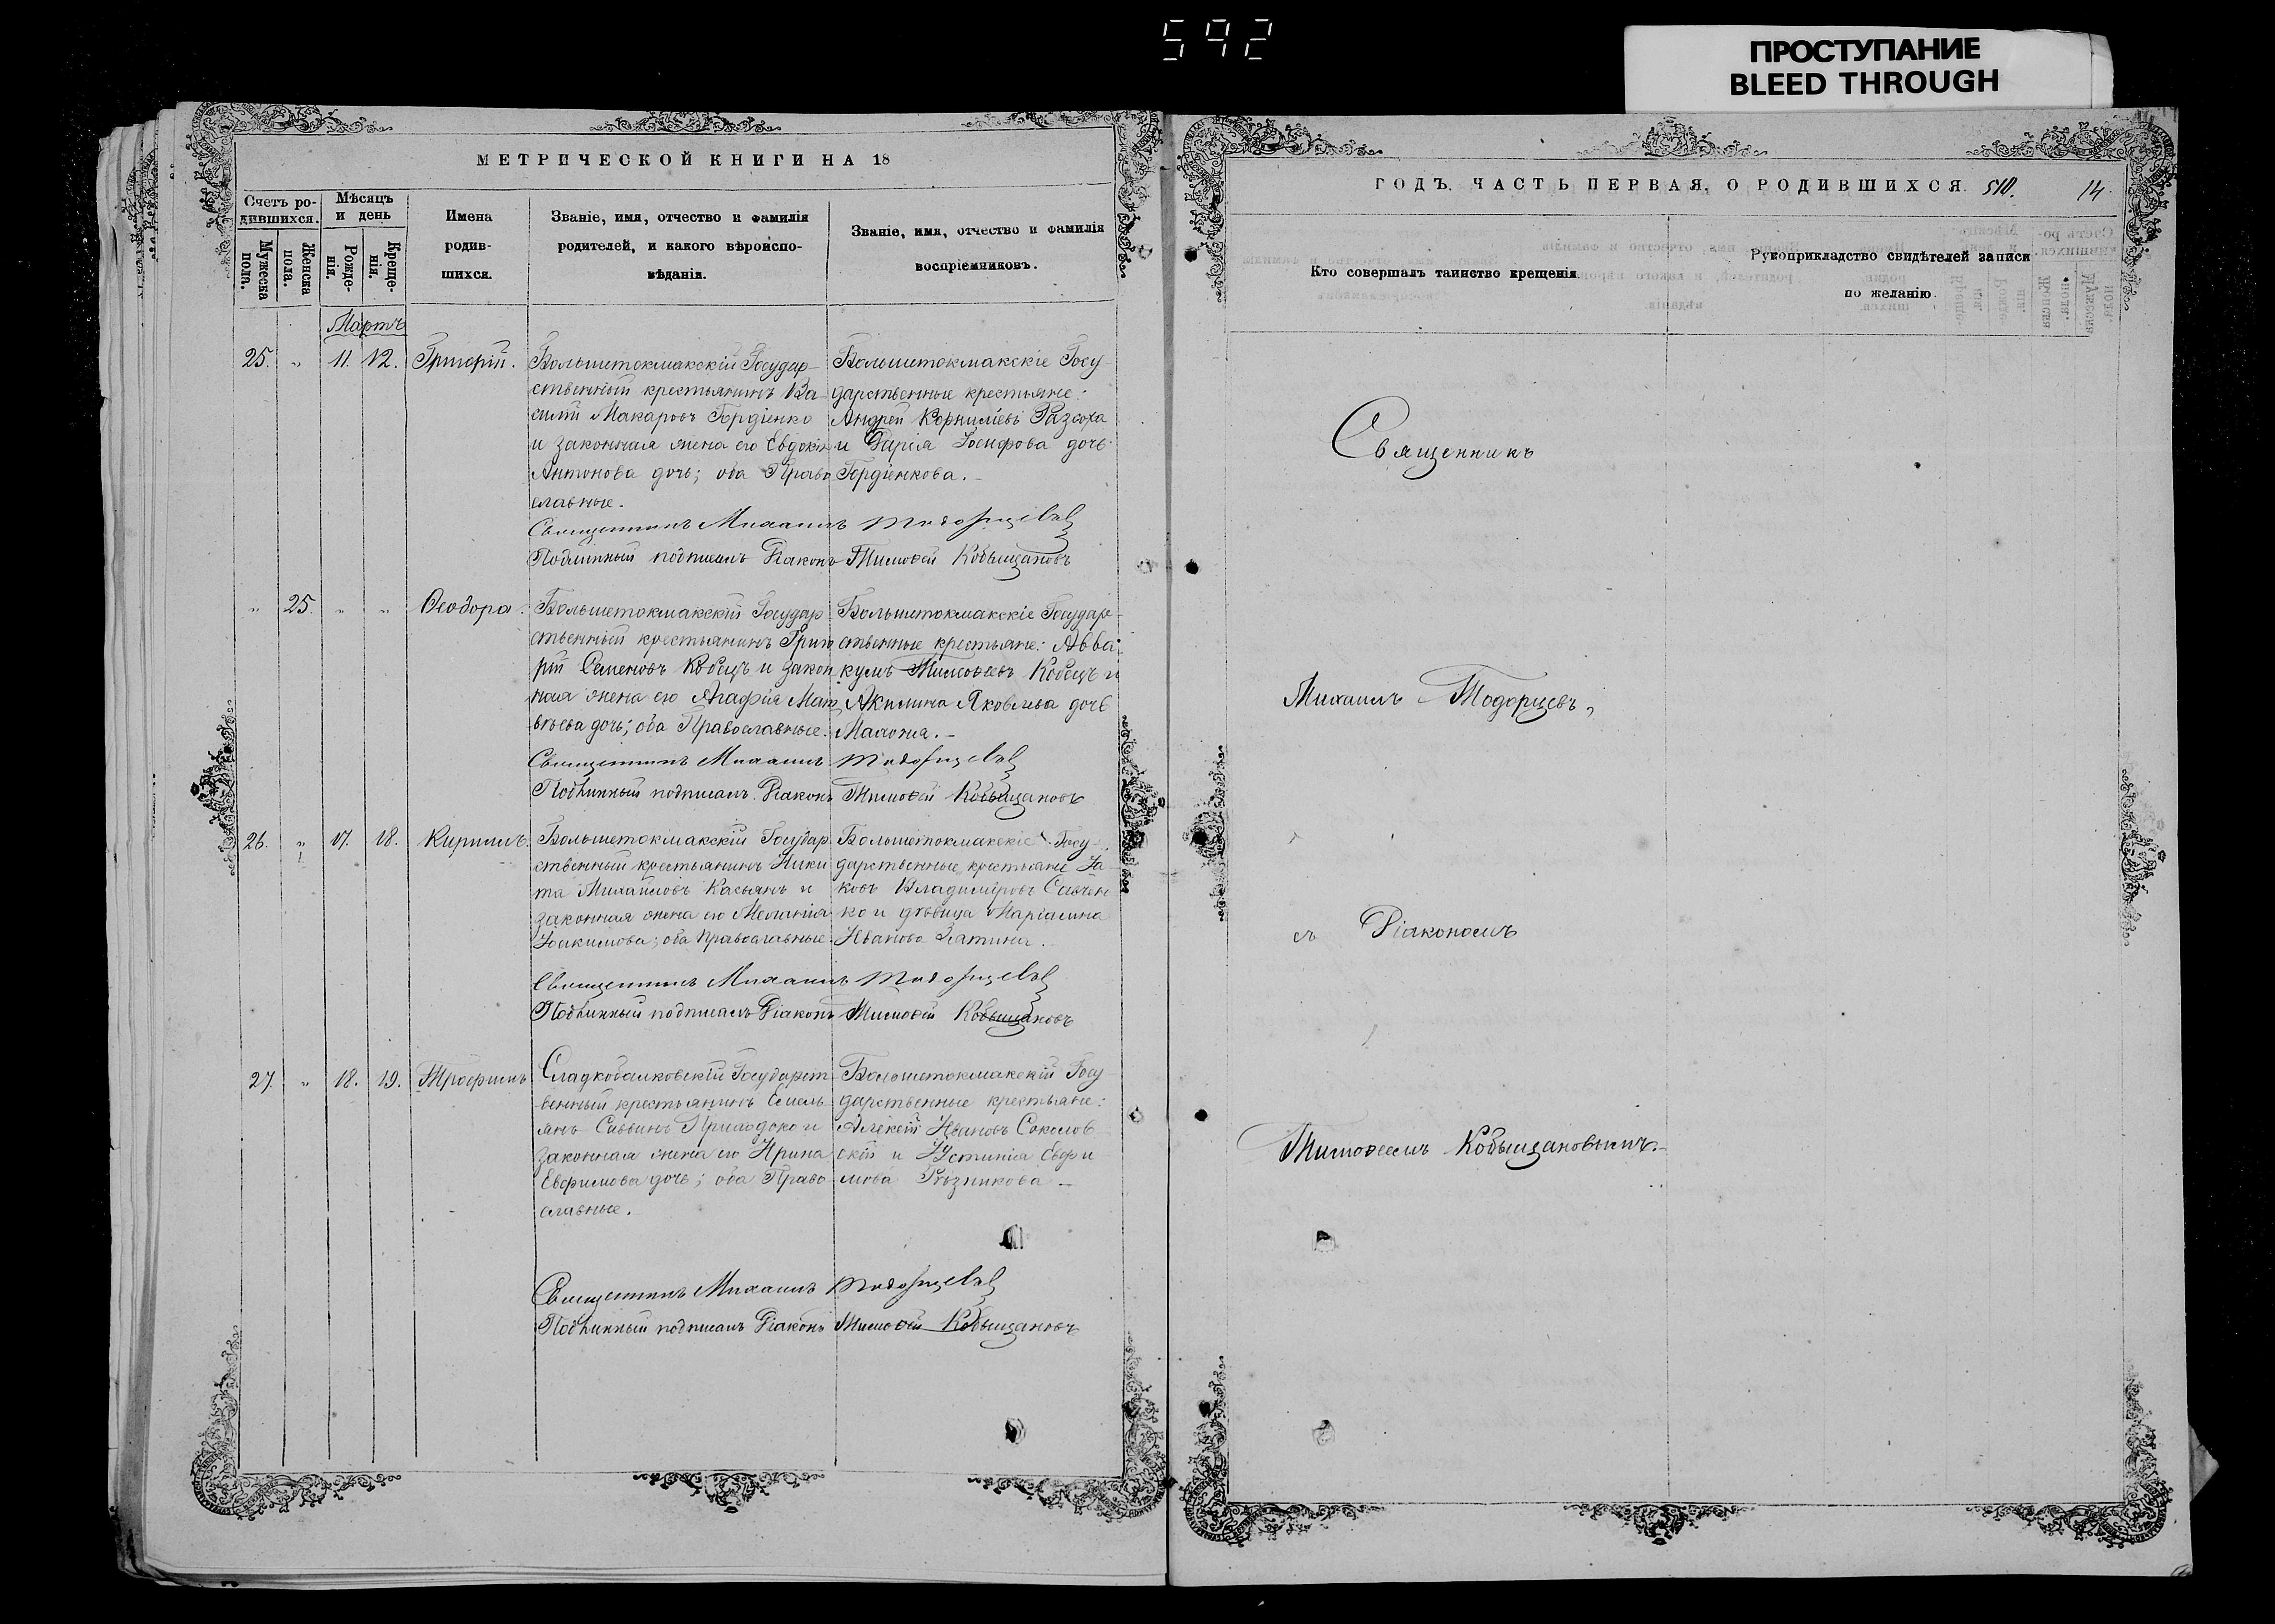 592
ПРОСТУПАНИЕ
BLEED THROUGH
МЕТРИЧЕСКОЙ КНИГИ НА 18
Счетъ ро-
дившихся.
Мужеска
пола.
Женска
пола.
Мѣсяцъ
и день
Рожде-
нія.
Креще-
нія.
Имена
родив-
шихся.
Званіе, имя, отчество и фамилія
родителей, и какого вѣроиспо-
вѣданія.
Званіе, имя, отчество и фамилія
воспріемниковъ.
Мартъ
25. " 11. 12. Григорій.
Большетокмакскій Государ-
ственный крестьянинъ Ва-
силій Макаровъ Гордіенко
и законная жена его Евдокія
Антонова дочь; оба Право
славные.
Большетокмакскіе Госу-
дарственные крестьяне:
Андрей Корниліевъ Разсоха
и Дарія Іосифова дочь
Гордіенкова.
Священникъ Михаилъ Тодорцевъ
Подлинный подписалъ Діаконъ Тимоѳей Кобыщановъ
" 25. " " Ѳеодора.
Большетокмакскій Государ
ственный крестьянинъ Григо
рій Семеновъ Кобецъ и закон
ная жена его Агафія Мат
вѣева дочь; оба Православные.
Большетокмакскіе Государ-
ственные крестьяне: Авва-
кумъ Тимоѳеевъ Кобецъ и
Акилина Яковлева дочь
Священникъ Михаилъ Тодорцевъ
Подлинный подписалъ Діаконъ Тимоѳей Кобыщановъ
26. " 17. 18. Кириллъ
Большетокмакскій Государ
ственный крестьянинъ Ники
та Михайловъ Касьянъ и
законная жена его Меланія
Іоакимова; оба православные.
Большетокмакскіе Госу-
дарственные крестьяне Іа-
ковъ Владиміровъ Савчен
ко и дѣвица Маріамна
Иванова
Священникъ Михаилъ Тодорцевъ
Подлинный подписалъ Діаконъ Тимоѳей Кобыщановъ
27. " 18. 19. Трофимъ
Сладкобалковскій Государст
венный крестьянинъ Емель
янъ Саввинъ и
законная жена его Ирина
Евфимова дочь; оба Право
славные.
Большетокмакскій Госу
дарственные крестьяне:
Алексѣй Ивановъ Соколов
скій и Устинія Евфи
мова Рѣзникова
Священникъ Михаилъ Тодорцевъ
Подлинный подписалъ Діаконъ Тимоѳей Кобыщановъ
ГОДЪ. ЧАСТЬ ПЕРВАЯ, О РОДИВШИХСЯ. 510. 14.
Кто совершалъ таинство крещенія.
Рукоприкладство свидѣтелей записи
по желанію.
Священникъ
Михаилъ Тодорцевъ,
съ Діакономъ
Тимоѳеемъ Кобыщановымъ.